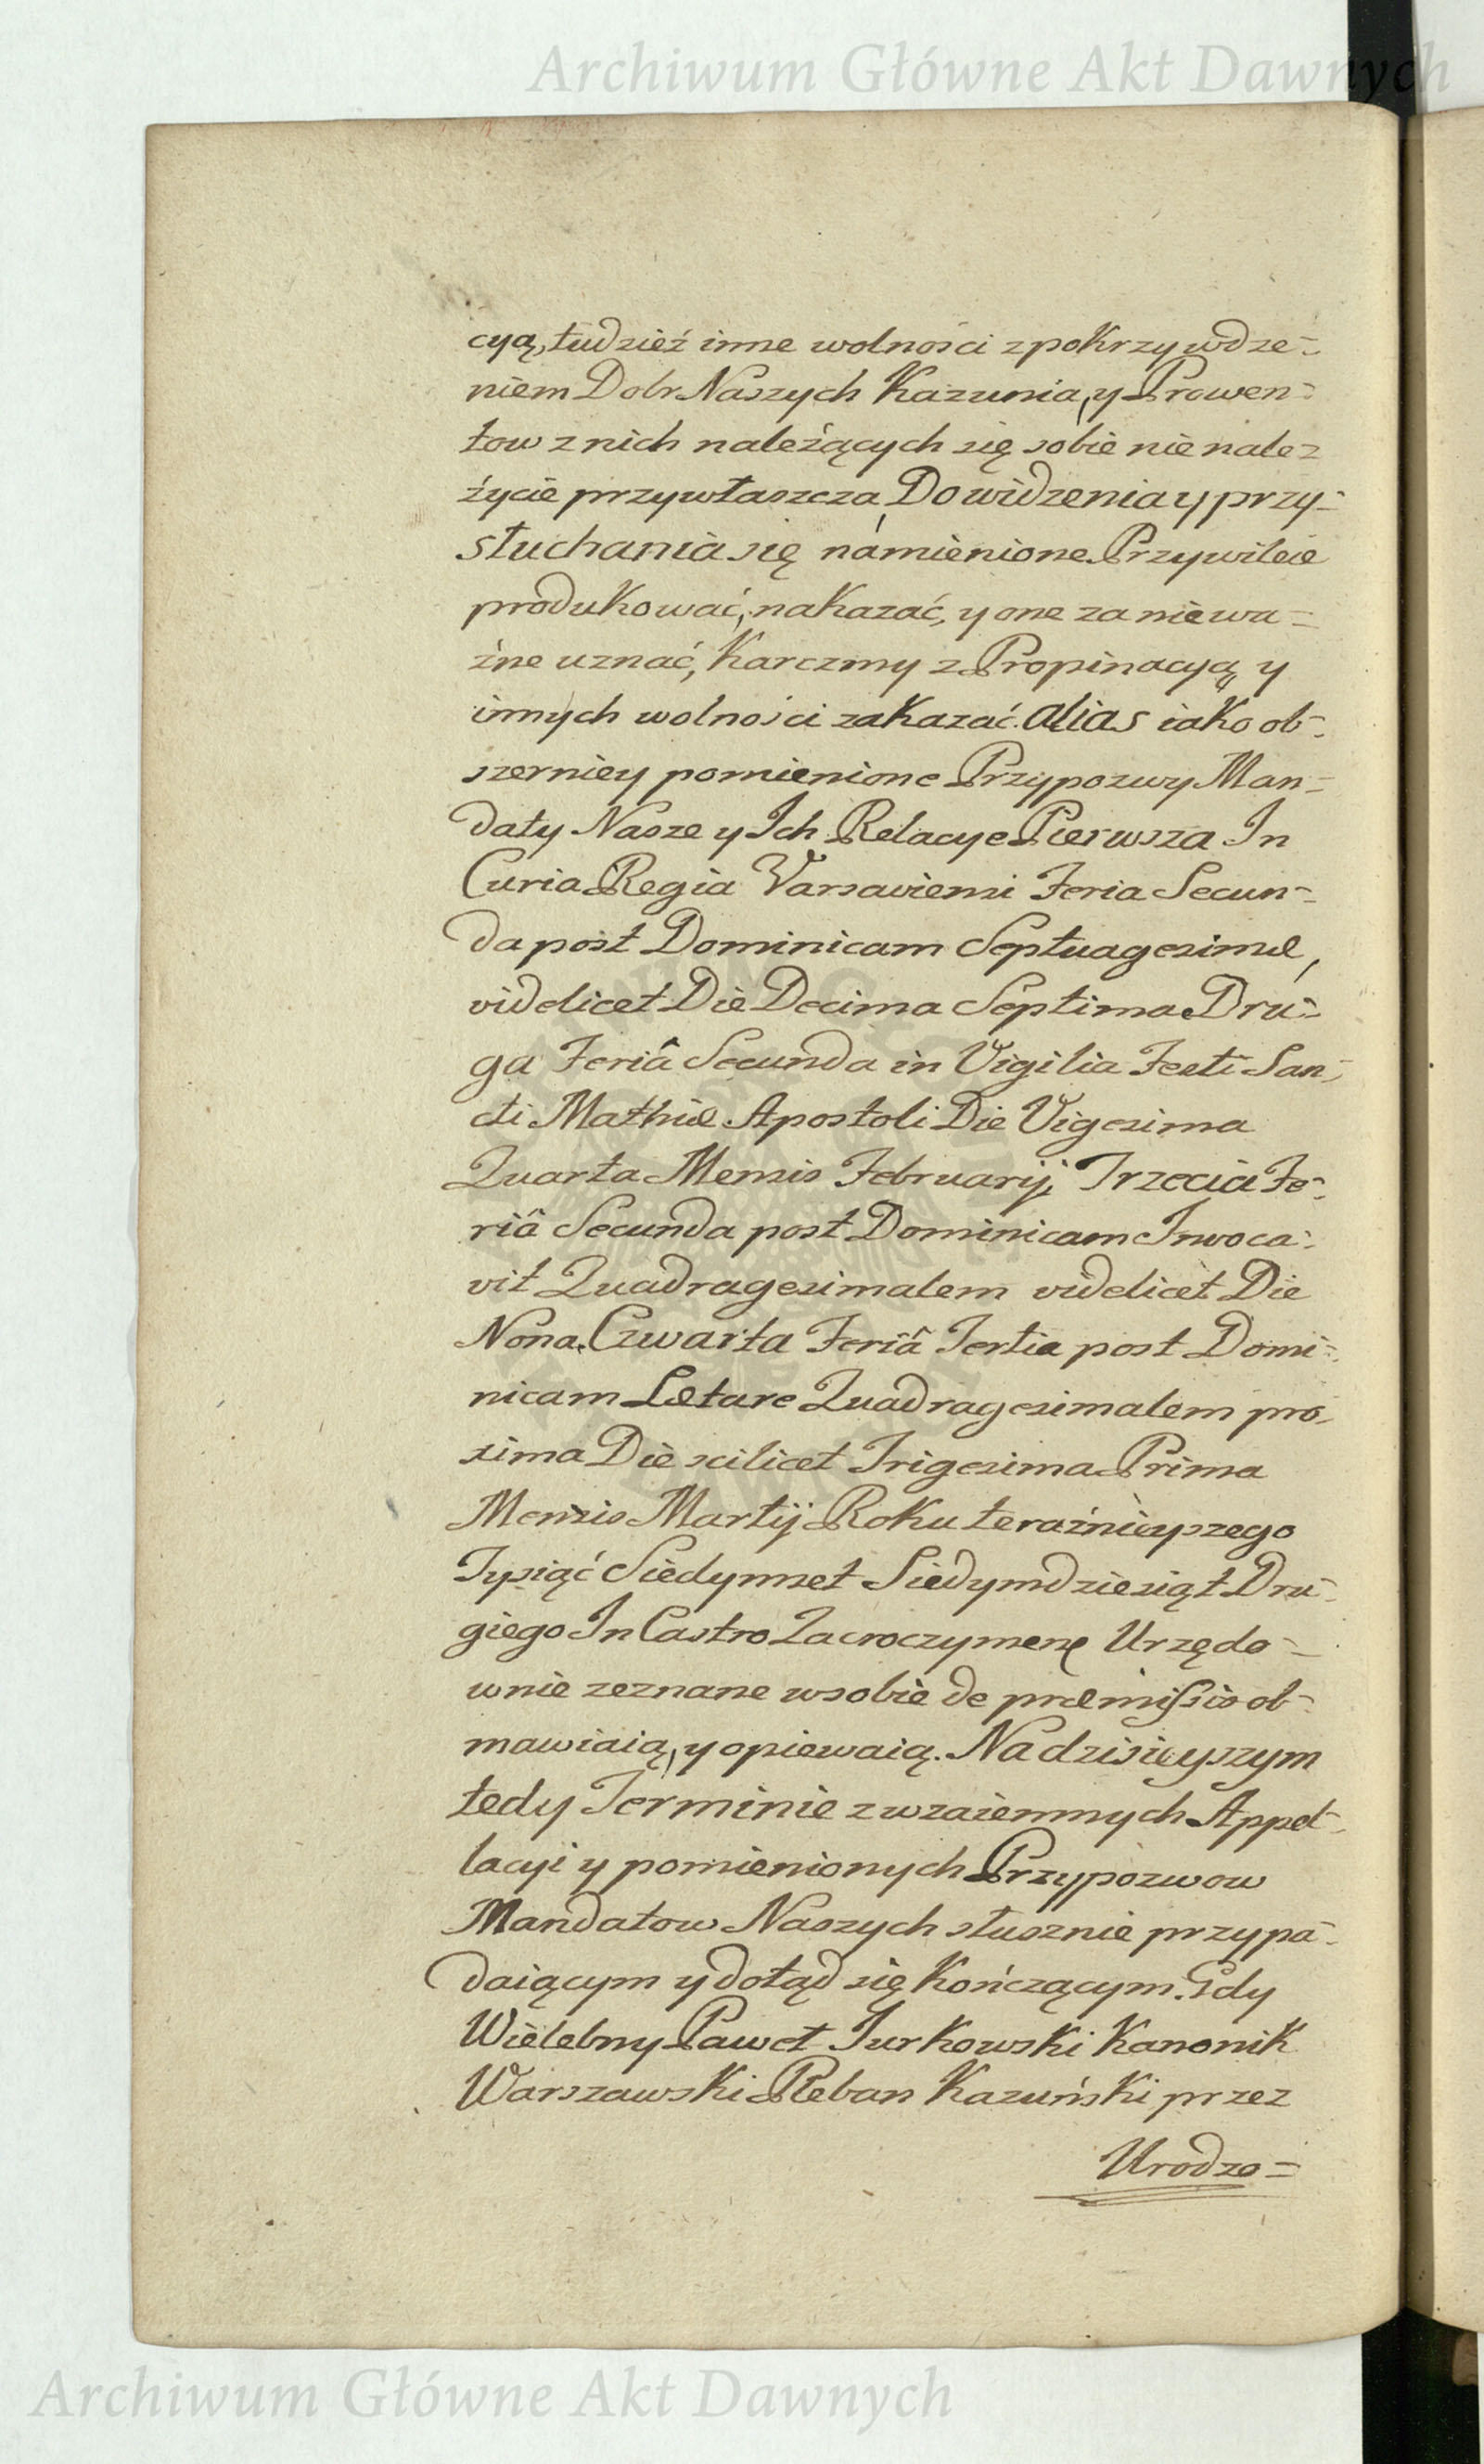 Archiwum Główne Akt Dawnych
cyą, tudzież inne wolności z pokrzywdze=
niem Dobr Naszych Kazunia, y Prowen=
tow z nich należących się sobie nie nale=
życie przywłaszcza, Do widzenia y przy=
słuchania się námienione Przywileie
produkować, nakazać, y one za niewa=
żne uznać, Karczmy z Propinacyą, y
innych wolności zakazać. alias iako ob=
szerniey pomienione Przypozwy Man=
daty Nasze y Ich Relacye Pierwsza In
Curia Regia Varsaviensi Feria Secun=
da post Dominicam Septuagesimæ,
videlicet Die Decima Septima Dru=
ga Feriâ Secunda in Vigilia Festi San=
cti Mathiæ Apostoli Die Vigesima
Quarta Mensis Februarij, Trzecia Fe=
riâ Secunda post Dominicam Invoca=
vit Quadragesimalem videlicet Die
Nona. Czwarta Feriâ Tertia post Domi=
nicam Lætare Quadragesimalem pro=
xima Die scilicet Trigesima Prima
Mensis Martij Roku teraźnieyszego
Tysiąć Siedymset Siedymdziesiąt Dru=
giego In Castro Zacroczymenę Urzędo=
wnie zeznane w sobie de præmissis ob=
mawiaią, y opiewaią. Na dzisieyszym
tedy Terminie z wzaiemnych Appel=
lacyi y pomienionych Przypozwow
Mandatow Naszych słusznie przypa=
daiącym y dotąd się kończącym. Gdy
Wielebny Paweł Jurkowski Kanonik
Warszawski Pleban Kazuński przez
Urodzo=
Archiwum Główne Akt Dawnych